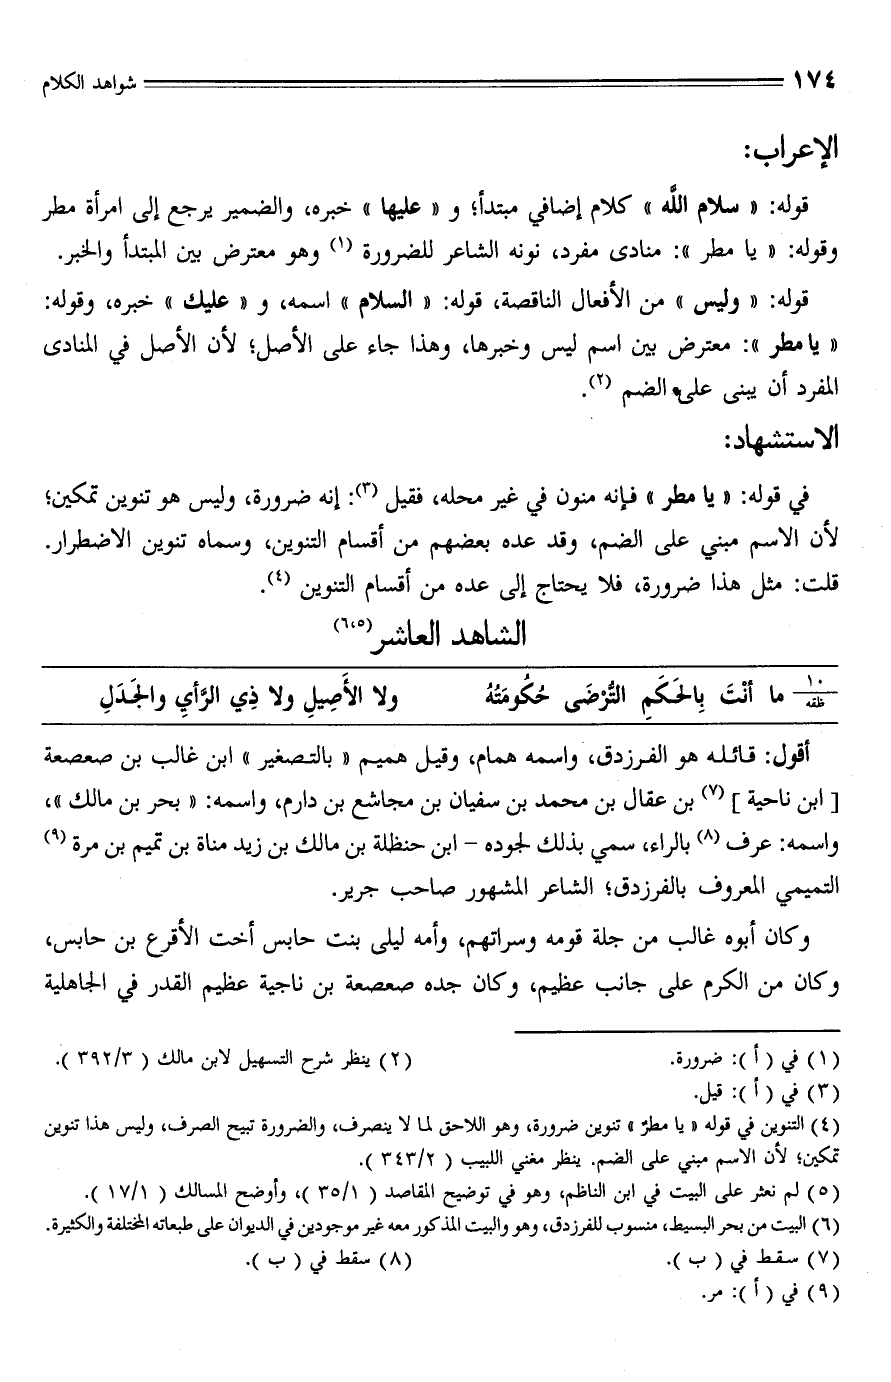 ١٧٤ شواهد الكلام
الإعراب:
قوله: « سلام اللَّه » كلام إضافي مبتدأ؛ و « عليها » خبره، والضمير يرجع إلى امرأة مطر
وقوله: « يا مطر »: منادى مفرد، نونه الشاعر للضرورة (١) وهو معترض بين المبتدأ والخبر.
قوله: « وليس » من الأفعال الناقصة، قوله: « السلام » اسمه، و « عليك » خبره، وقوله:
« يا مطر »: معترض بين اسم ليس وخبرها، وهذا جاء على الأصل؛ لأن الأصل في المنادى
المفرد أن يبنى على الضم (٢).
الاستشهاد:
في قوله: « يا مطر » فإنه منون في غير محله، فقيل (٣): إنه ضرورة، وليس هو تنوين تمكين؛
لأن الاسم مبني على الضم، وقد عده بعضهم من أقسام التنوين، وسماه تنوين الاضطرار.
قلت: مثل هذا ضرورة، فلا يحتاج إلى عده من أقسام التنوين (٤).
الشاهد العاشر(٦،٥)
١٠ ظقه ما أنْتَ بِالحَكَمِ التُّرْضَى حُكُومَتُهُ ولا الأَصِيلِ ولا ذِي الرَّأيِ والجَدَلِ
أقول: قائله هو الفرزدق، واسمه همام، وقيل هميم « بالتصغير » ابن غالب بن صعصعة
[ ابن ناحية ] (٧) بن عقال بن محمد بن سفيان بن مجاشع بن دارم، واسمه: « بحر بن مالك »،
واسمه: عرف (٨) بالراء، سمي بذلك لجوده – ابن حنظلة بن مالك بن زيد مناة بن تميم بن مرة (٩)
التميمي المعروف بالفرزدق؛ الشاعر المشهور صاحب جرير.
وكان أبوه غالب من جلة قومه وسراتهم، وأمه ليلى بنت حابس أخت الأقرع بن حابس،
وكان من الكرم على جانب عظيم، وكان جده صعصعة بن ناجية عظيم القدر في الجاهلية
(١) في ( أ ): ضرورة. (٢) ينظر شرح التسهيل لابن مالك ( ٣٩٢/٣ ).
(٣) في ( أ ): قيل.
(٤) التنوين في قوله « يا مطرٌ » تنوين ضرورة، وهو اللاحق لما لا ينصرف، والضرورة تبيح الصرف، وليس هذا تنوين
تمكين؛ لأن الاسم مبني على الضم. ينظر مغني اللبيب ( ٣٤٣/٢ ).
(٥) لم نعثر على البيت في ابن الناظم، وهو في توضيح المقاصد ( ٣٥/١ )، وأوضح المسالك ( ١٧/١ ).
(٦) البيت من بحر البسيط، منسوب للفرزدق، وهو والبيت المذكور معه غير موجودين في الديوان على طبعاته المختلفة والكثيرة.
(٧) سقط في ( ب ). (٨) سقط في ( ب ).
(٩) في ( أ ): مر.